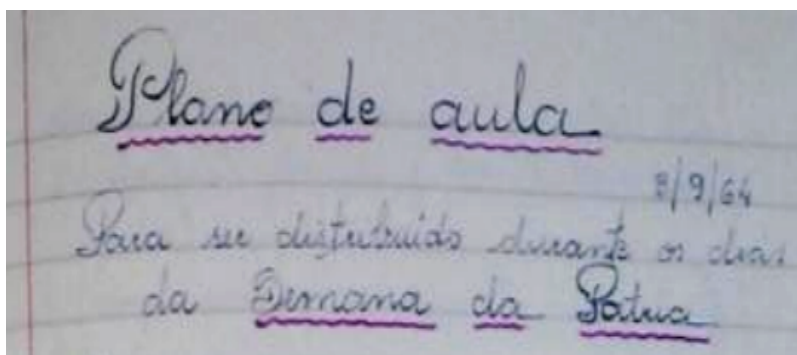 Plano de aula
8/9/64
Para ser distribuido durante os dias
da Semana da Patria